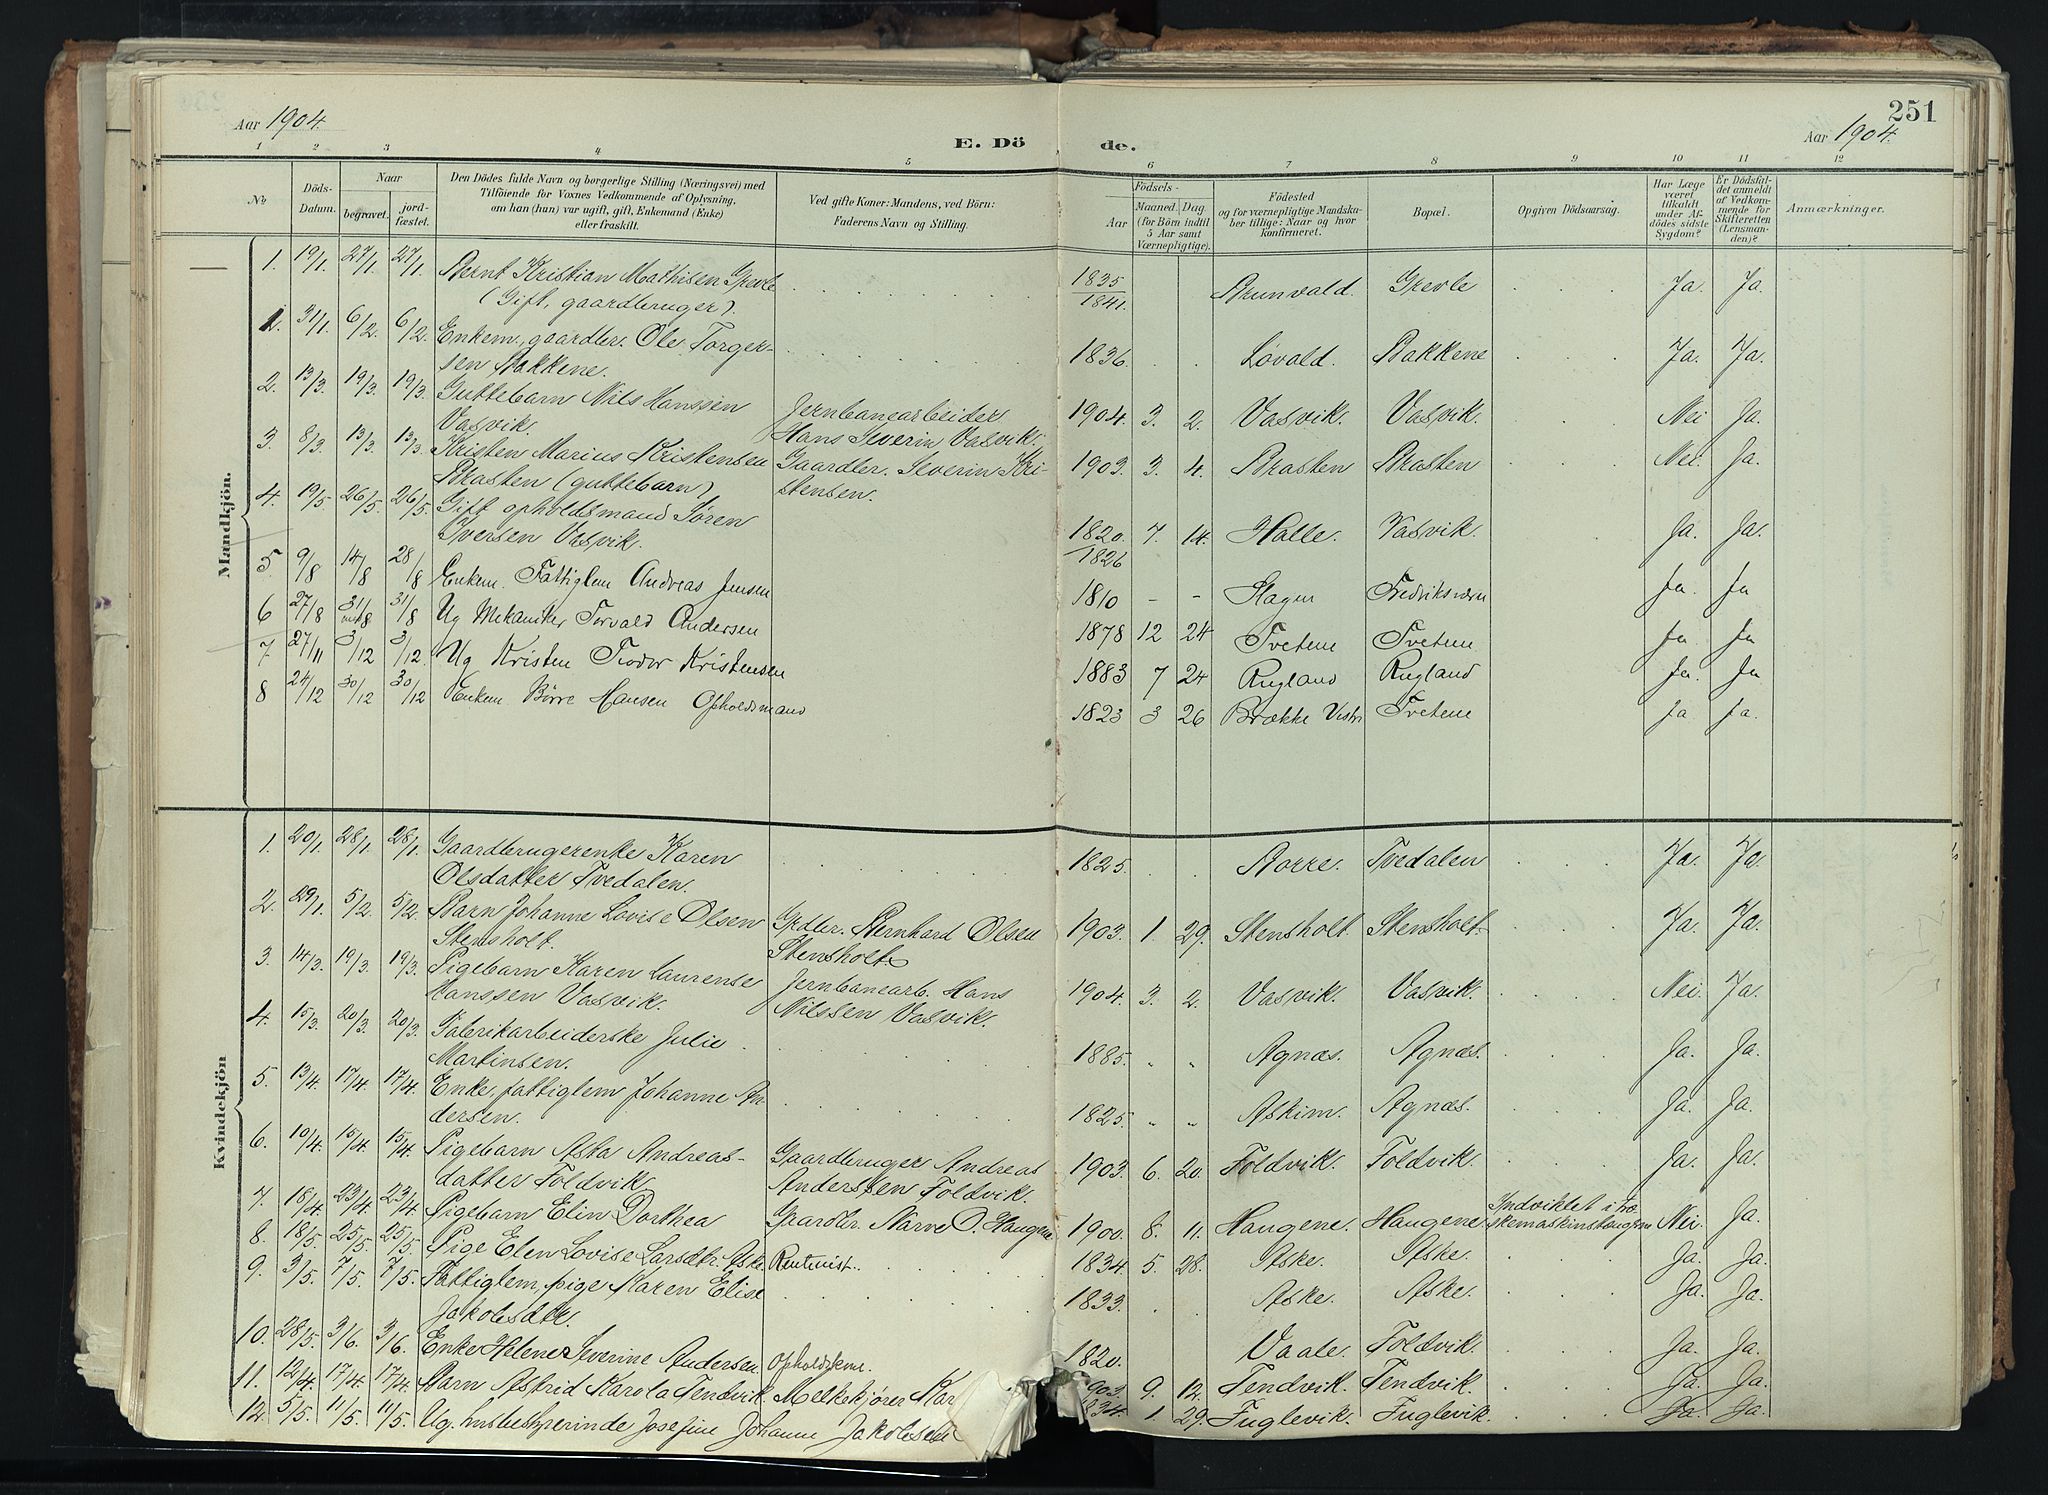 251
Aar 1904. E. Dö de. Aar 1904.
1 2 3 4 5 6 7 8 9 10 11 12
No.
Döds-Datum.
Naar
begravet.
jord-fæstet.
Den Dödes fulde Navn og borgerlige Stilling (Næringsvei) med
Tilföiende for Voxnes Vedkommende af Oplysning,
om han (hun) var ugift, gift, Enkemand (Enke)
eller fraskilt.
Ved gifte Koner: Mandens, ved Börn:
Faderens Navn og Stilling.
Födsels-
Aar
Maaned. Dag.
(for Börn indtil
5 Aar samt
Værnepligtige).
Födested
og for værnepligtige Mandska-
ber tillige: Naar og hvor
konfirmeret.
Bopæl.
Opgiven Dödsaarsag.
Har Læge
været
tilkaldt
under Af-
dödes sidste
Sygdom?
Er Dödsfal-
det anmeldt
af Vedkom-
mende for
Skifteretten
(Lensman-
den)?
Anmærkninger.
Mandkjön.
1. 19/1. 27/1. 27/1. Bernt Kristian Mathisen Grevle 1835 Brunvald. Grevle Ja. Ja.
(Gift, gaardbruger). 1841.
2. 31/1. 6/2. 6/2. Enkem., gaardbr. Ole Torger- 1836. Løvald. Bakkene Ja. Ja.
sen Bakkene.
2. 13/3. 19/3. 19/3. Guttebarn Nils Hanssen Jernbanearbeider 1904. 3. 2. Vasvik. Vasvik. Nei Ja.
Vasvik. Hans Severin Vasvik.
3. 8/3. 13/3. 13/3. Kristen Marius Kristensen Gaardbr. Severin Kri- 1903. 3. 4. Brasten Brasten Nei. Ja.
Brasten (guttebarn) stensen.
4. 19/5. 26/5. 26/5. Gift opholdsmand Søren 1820. 7. 14. Halle. Vasvik. Ja. Ja.
Iversen Vasvik. 1826
5 9/8 14/8 28/8 Enkem. Fattiglem Andreas Jensen 1810 - - Slagen Fredriksværn Ja. Ja
6 27/8 31/8 31/8 Ug Mekaniker Torvald Andersen 1878 12 24 Tvetene Tvetene Ja Ja
7 27/11 3/12 3/12. Ug Kristen Tiodor Kristensen 1883 7 24 Rugland Rugland Ja. Ja
8 24/12 30/12 30/12 Enkem Börre Hansen Opholdsmand 1823 3 26 Brække Vestr Tvetene Ja Ja.
Kvindekjön
1. 20/1. 28/1. 28/1. Gaardbrugerenke Karen 1825. Borre. Tvedalen Ja. Ja.
Olsdatter Tvedalen.
2. 29/1. 5/2. 5/2. Barn Johanne Lovise Olsen Grdbr. Bernhard Olsen 1903. 1. 29. Stensholt. Stensholt. Ja. Ja.
Stensholt. Stensholt
3. 14/3. 19/3. 19/3. Pigebarn Karen Laurense Jernbanearb. Hans 1904. 3. 2. Vasvik. Vasvik. Nei. Ja.
Hanssen Vasvik. Nilssen Vasvik.
4. 15/3. 20/3. 20/3. Fabrikarbeiderske Julie 1885. „ „ Agnæs. Agnæs. Ja. Ja.
Martinsen.
5. 13/4. 17/4. 17/4. Enke, fattiglem Johanne An 1825. „ „ Askim. Agnæs. Ja. Ja.
dersen.
6. 10/4. 15/4. 15/4. Pigebarn Asta Andreas- Gaardbruger Andreas 1903. 6. 20. Foldvik. Foldvik. Ja. Ja.
datter Foldvik. Anderssen Foldvik.
7. 18/4. 23/4. 23/4. Pigebarn Elin Dorthea Gaardbr. Narve O. Haugene 1900. 8. 11. Haugene. Haugene. Indviklet i træ skemaskinstangen Nei. Ja.
8. 18/5. 25/5. 25/5. Pige Elen Lovise Larsdtr. Aske. Rentenist. 1834. 5. 28. Aske. Aske. Ja. Ja.
9. 3/5. 7/5. 7/5. Fattiglem, pige Karen Elise 1833. Aske. Aske. Ja. Ja.
Jakobsdtr.
10. 28/5. 3/6. 3/6. Enke Helene Severine Andersen. Opholdskone. 1820. Vaale. Foldvik. Ja. Ja.
11. 12/4. 17/4. 17/4. Barn Astrid Karola Tendvik. Melkekjører Kar 903. 9. 12. Tendvik. Tendvik. Ja. Ja.
12. 5/5. 11/5. 11/5. Ug. husbestyrerinde Josefine Johanne Jakobsen 834. 1. 29. Fuglevik. Fuglevik. Ja. Ja.